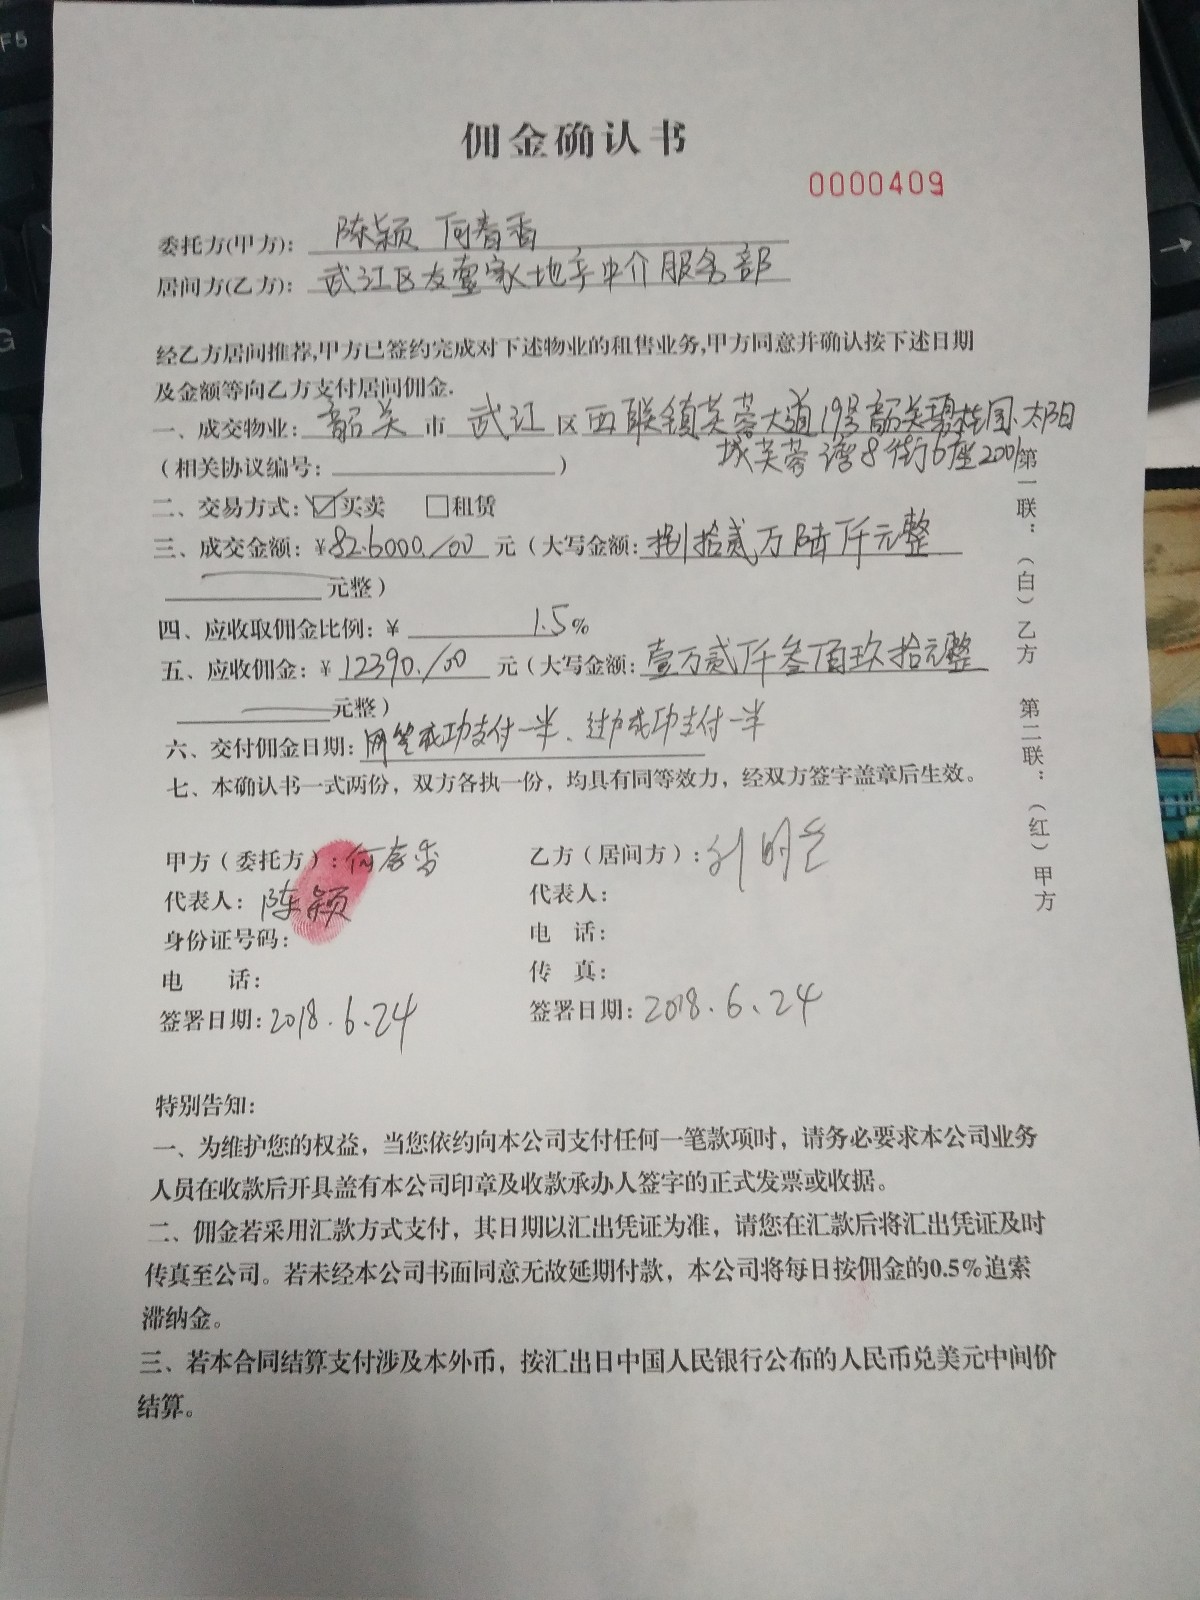 佣金确认书
0000409
委托方(甲方)： 陈颖 何春香
居间方(乙方)： 武江区友壹家地产中介服务部
经乙方居间推荐,甲方已签约完成对下述物业的租售业务,甲方同意并确认按下述日期
及金额等向乙方支付居间佣金.
一、成交物业：韶关市 武江区西联镇芙蓉大道19号韶关碧桂园·太阳
城芙蓉湾8街6座2001
（相关协议编号：）
二、交易方式：☑买卖 □租赁
三、成交金额：￥82.6000./00 元（大写金额：捌拾贰万陆仟元整
元整）
四、应收取佣金比例：￥ 1.5%
五、应收佣金：￥12390./00 元（大写金额：壹万贰仟叁佰玖拾元整
元整）
六、交付佣金日期：网签成功支付一半、过户成功支付一半
七、本确认书一式两份，双方各执一份，均具有同等效力，经双方签字盖章后生效。
第一联：（白）乙方 第二联：（红）甲方
甲方（委托方）：何春香
代表人：陈颖
身份证号码：
电 话：
签署日期：2018.6.24
乙方（居间方）：
代表人：
电 话：
传 真：
签署日期：2018.6.24
特别告知：
一、为维护您的权益，当您依约向本公司支付任何一笔款项时，请务必要求本公司业务
人员在收款后开具盖有本公司印章及收款承办人签字的正式发票或收据。
二、佣金若采用汇款方式支付，其日期以汇出凭证为准，请您在汇款后将汇出凭证及时
传真至公司。若未经本公司书面同意无故延期付款，本公司将每日按佣金的0.5%追索
滞纳金。
三、若本合同结算支付涉及本外币，按汇出日中国人民银行公布的人民币兑美元中间价
结算。
F5
G